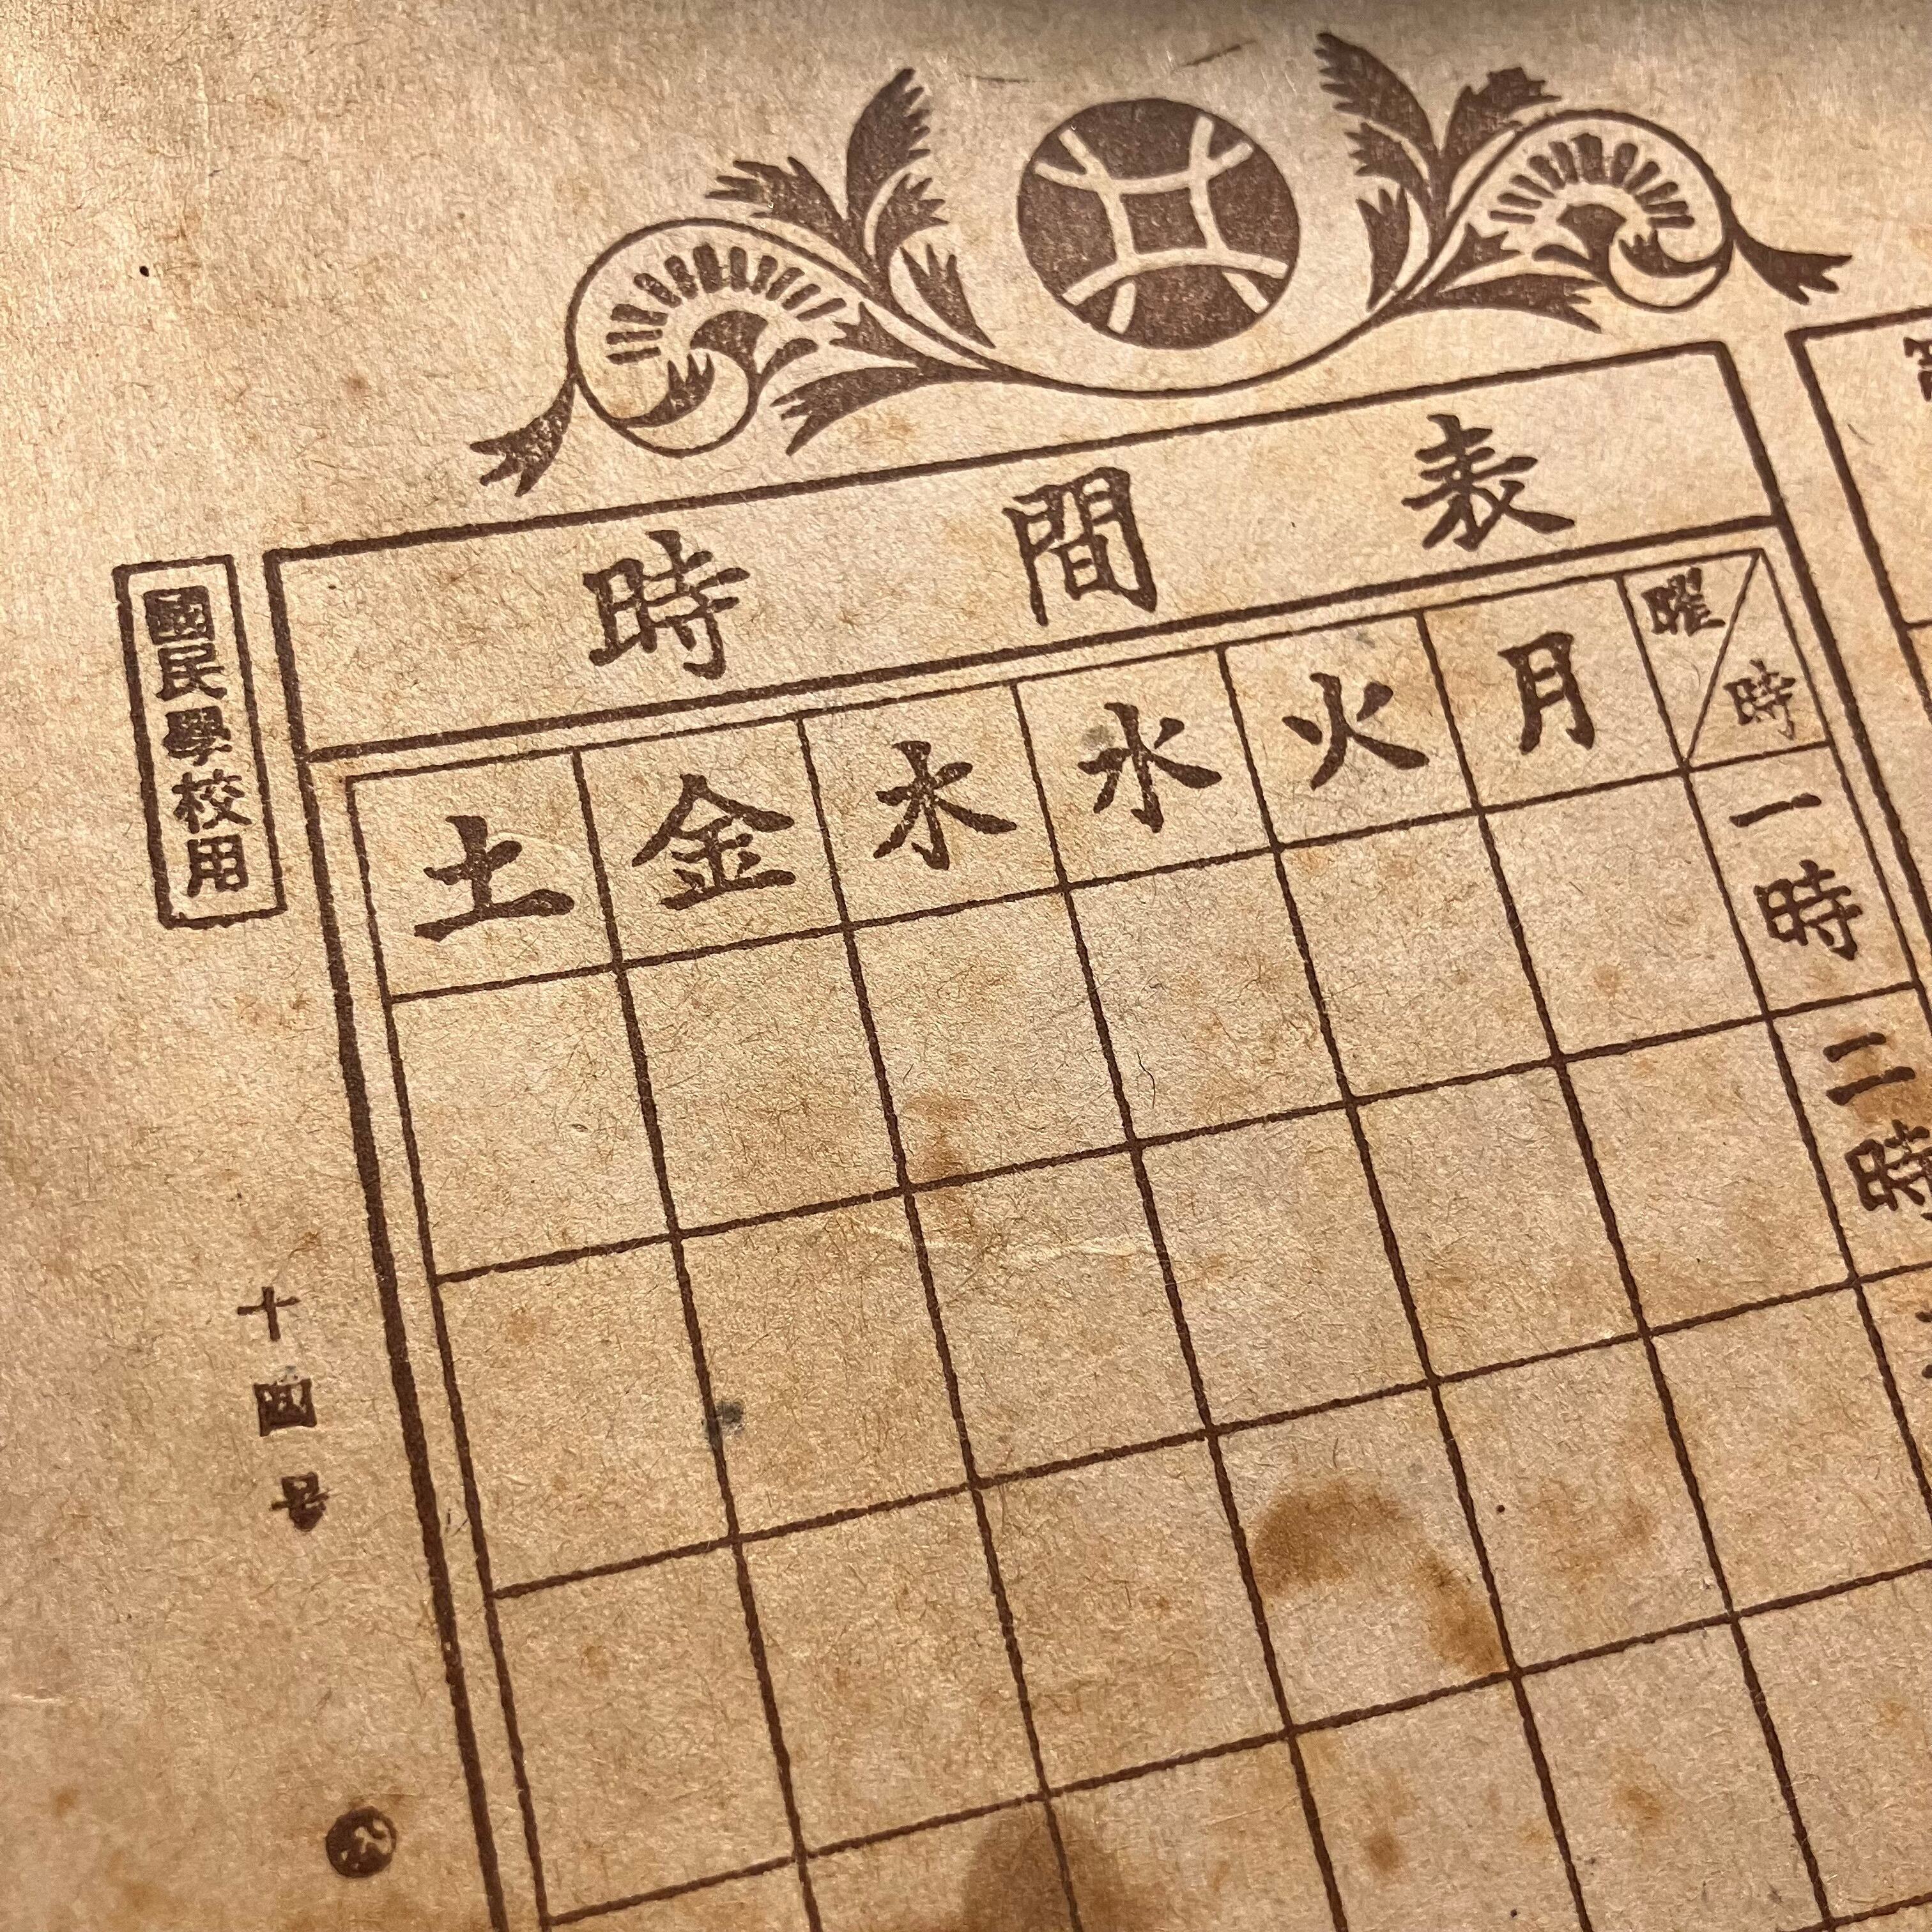 時間表
曜 時
月 火 水 木 金 土
一時
二時
國民學校用
十四号